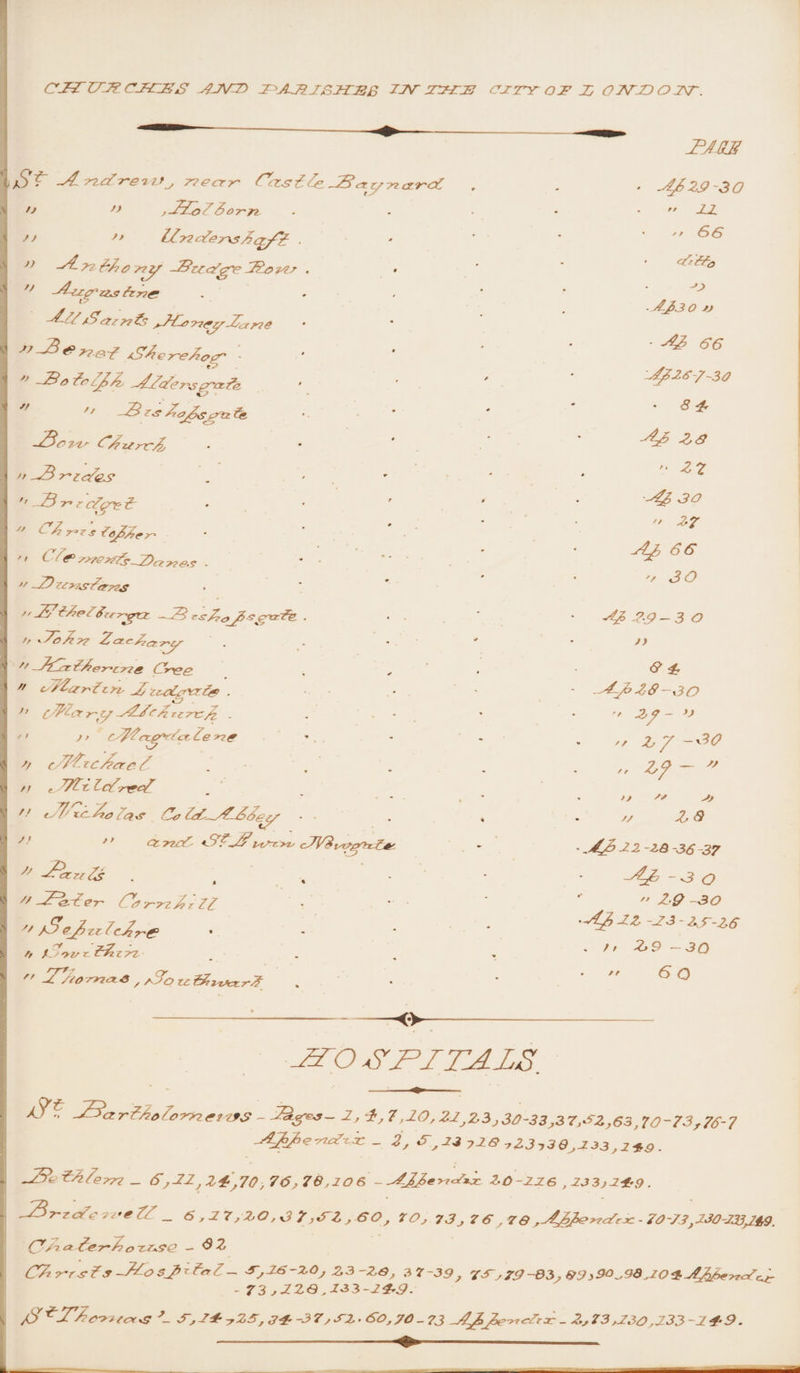 CHURCHES AND PARISHES IN THE CITY OF LONDON.
PAGE
St Andrew, near Castle Baynard . . . Ap 29-30
" " , Holborn . . . . " 11
" " Undershaft . . . . " 66
" Anthony Budge Row . . . ditto
" Augustine . . . . "
All Saints, Honey Lane . . . Ap 30 "
" Benet Sherehog . . . . Ap 66
" Botolph Aldersgate . . . Ap 26-7-30
" " Bishopsgate . . . . 84
Bow Church . . . . Ap 28
" Brides . . . . " 27
" Bridget . . . . Ap 30
" Christopher . . . . " 27
" Clements Danes . . . . Ap 66
" Dunstans . . . . " 30
" Ethelburga Beshopsgate . . . Ap 29-30
" John Zachary . . . . "
" Katherine Cree . . . . 84
" Martin Ludgate . . . . Ap 28-30
" Mary Alchurch . . . . " 29- "
" " Magdalene . . . . " 27-30
" Michael . . . . " 29- "
" Mildred . . . . " " "
" Nicholas Cold Abbey . . . " 28
" " and St Ewin Newgate . . Ap 22-28-36-37
" Pauls . . . . Ap -30
" Peter Cornhill . . . " 29-30
" Sepulchre . . . . Ap 12-23-25-26
" Swithin . . . . " 29-30
" Thomas, Southwark . . . " 60
HOSPITALS.
St Bartholomews - Pages- 1, 4, 7, 10, 21, 23, 30-33, 37, 52, 63, 70-73, 76-7
Appendix - 2, 5, 13, 18, 23, 38, 133, 149.
Bethlem - 6, 11, 24, 70, 76, 78, 106 - Appendix 20-116, 133, 149.
Bridewell - 6, 17, 20, 37, 52, 60, 70, 73, 76, 78, Appendix - 70-73, 130-133, 149.
Chaterhouse - 82
Christs Hospital - 5, 16-20, 23-28, 37-39, 75, 79-83, 89, 90, 98, 104 Appendix
- 73, 128, 133-149.
St Thomas's - 5, 14, 25, 34-37, 52. 60, 70-73 Appendix - 2, 73, 130, 133-149.